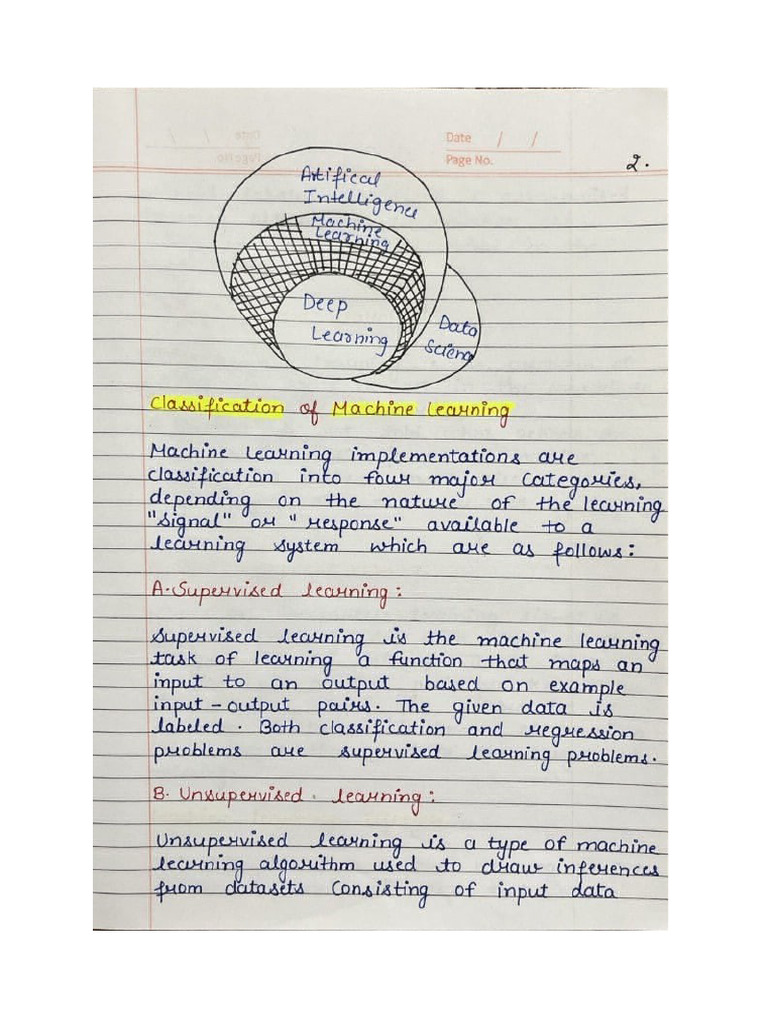 Date / /
Page No.
2.
Artifical
Intelligence
Machine
Learning
Deep
Learning
Data
Scienc
Classification of Machine Learning
Machine Learning implementations are
classification into four major categories,
depending on the nature of the learning
"signal" or "response" available to a
learning system which are as follows:
A. Supervised learning:
Supervised learning is the machine learning
task of learning a function that maps an
input to an output based on example
input-output pairs. The given data is
labeled. Both classification and regression
problems are supervised learning problems.
B. Unsupervised learning:
Unsupervised learning is a type of machine
learning algorithm used to draw inferences
from datasets consisting of input data